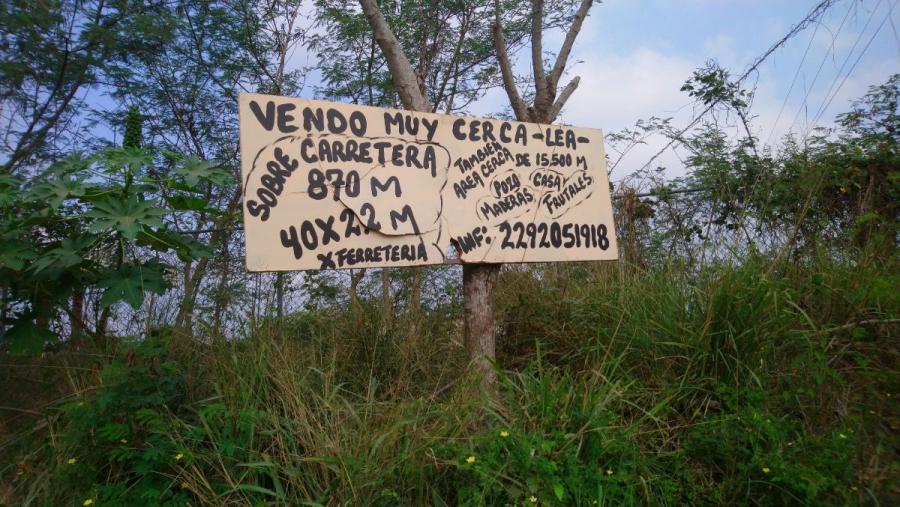 VENDO MUY CERCA -LEA-
SOBRE CARRETERA
870 M
40X22 M
X FERRETERIA
TAMBIEN
AREA CERCA DE 15,500 M
POZO CASA
MADERAS FRUTALES
INF: 2292051918